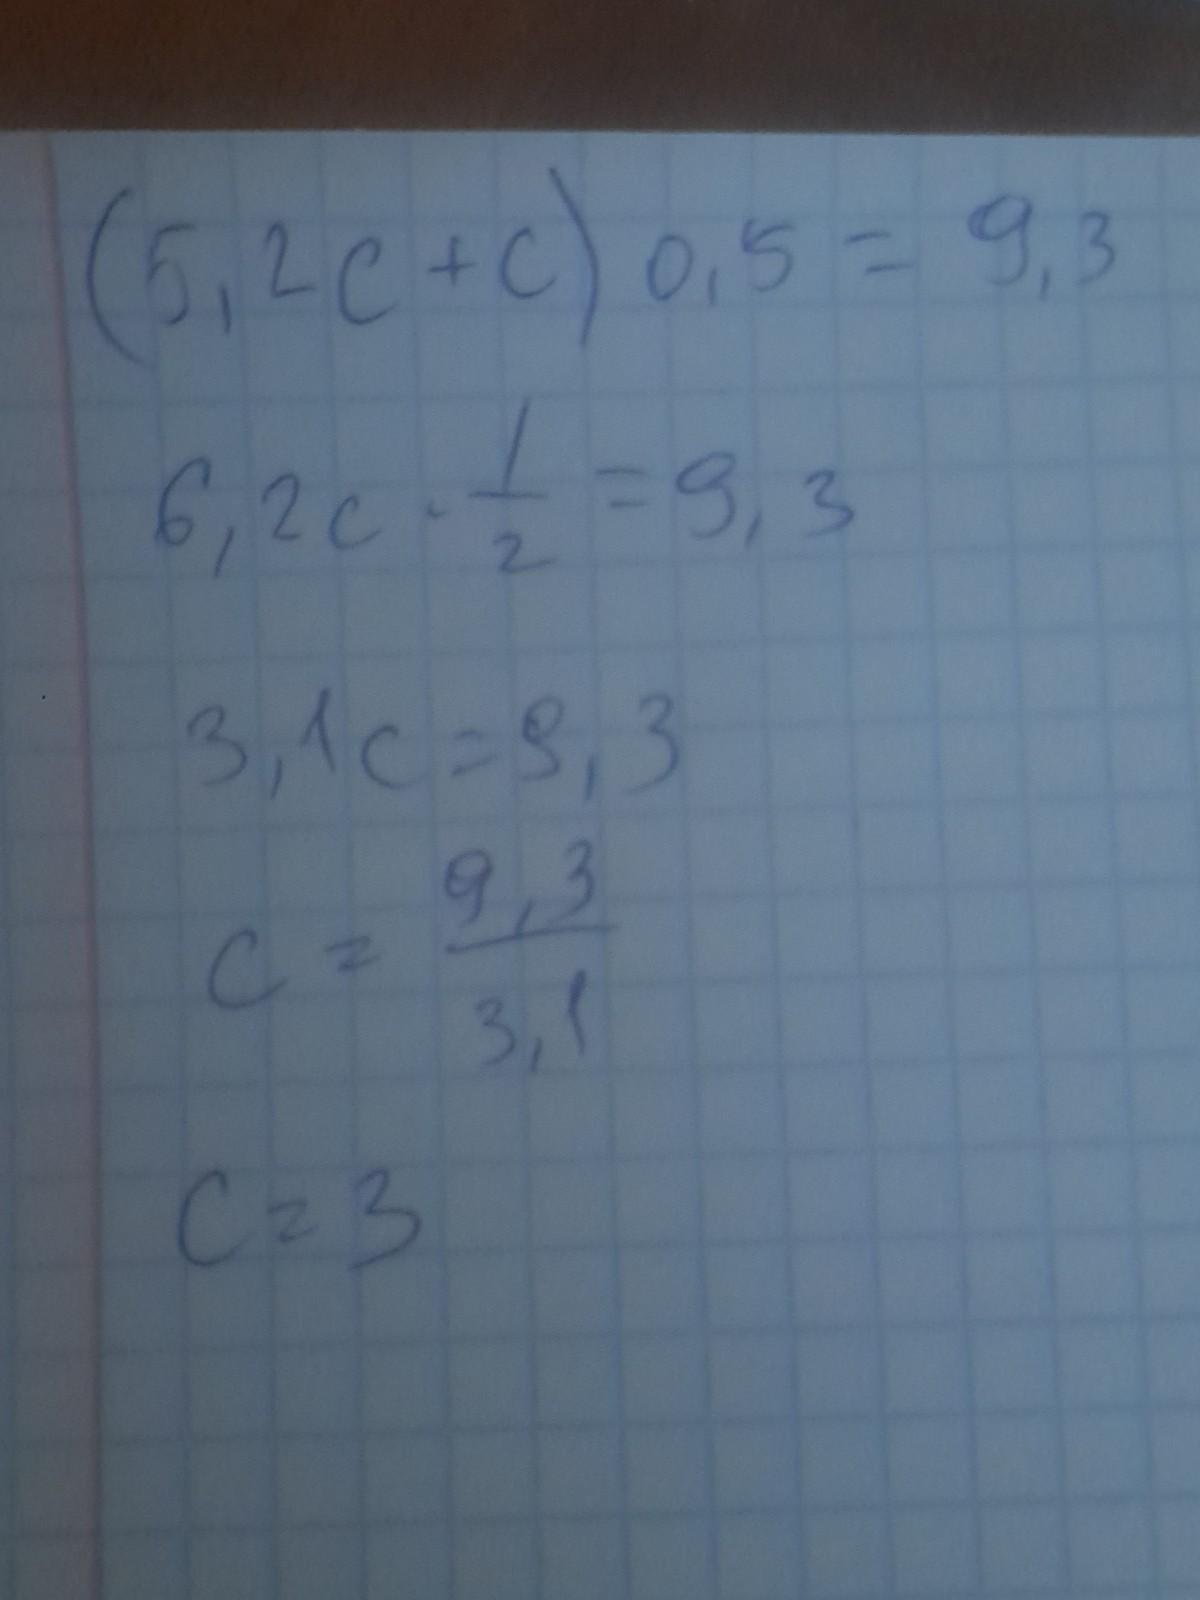 (5,2c+c) 0,5 = 9,3
6,2c · 1/2 = 9,3
3,1c = 9,3
c = 9,3/3,1
c = 3